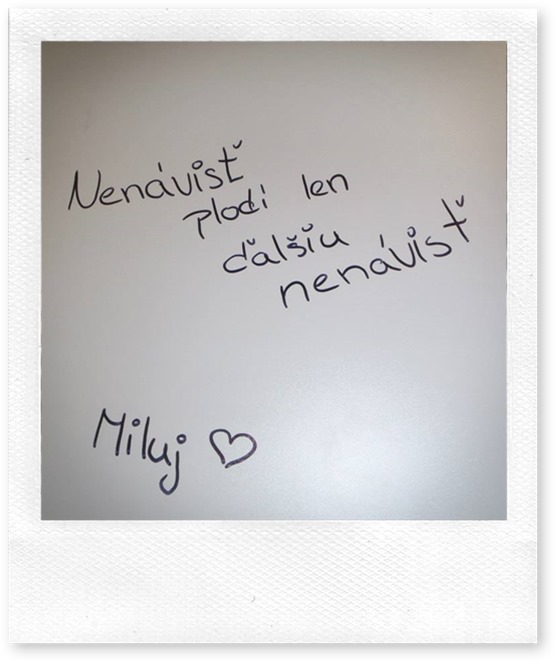 Nenávisť
plodí len
ďalšiu
nenávisť
Miluj ♡